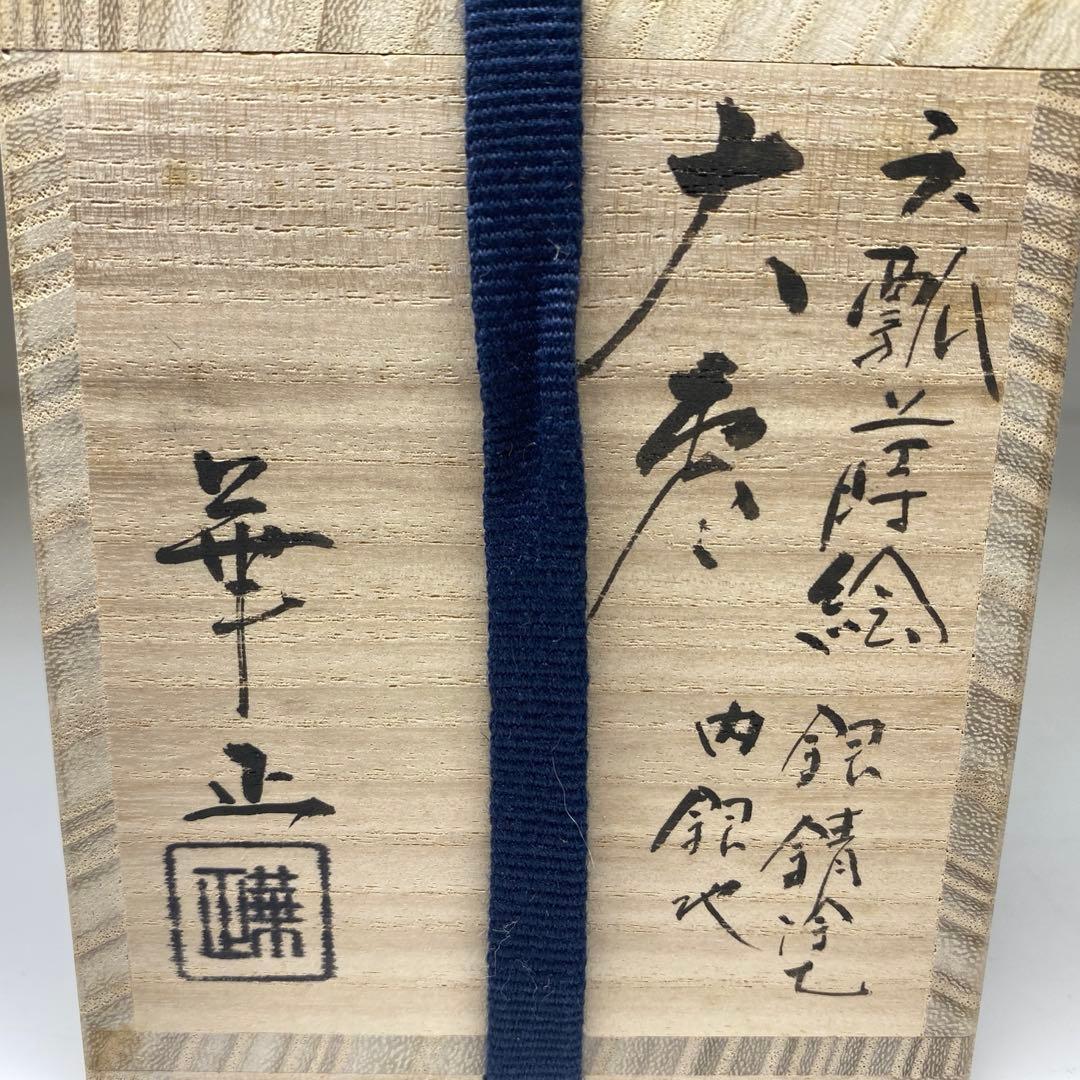 六瓢蒔絵 銀錆塗
大棗 内銀地
華正
華正